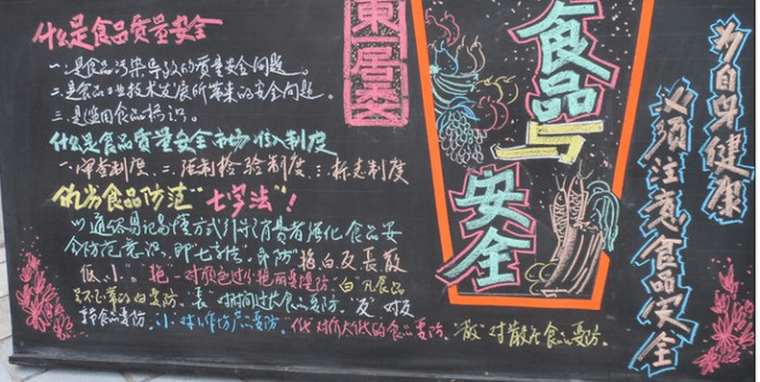 什么是食品质量安全
一.是食品污染导致的质量安全问题。
二.是食品工业技术发展所带来的安全问题。
三.是滥用食品标识。
什么是食品质量安全市场准入制度
一.审查制度、二.强制检验制度、三.标志制度
伪劣食品防范“七字法”！
以通俗易记易懂方式引导消费者强化食品安
全防范意识,即“七字法”,即防“艳白反长散
低、小”。艳一对颜色过分艳丽要提防.白 凡食品
要防.长 对时间过长食品要防.“反”对反
季节食品要防.小:对小作坊产品要防.低 对价格太低的食品要防.“散”对散装食品要防.
東居委
食品
与
安全
为自身健康
必须注意食品安全